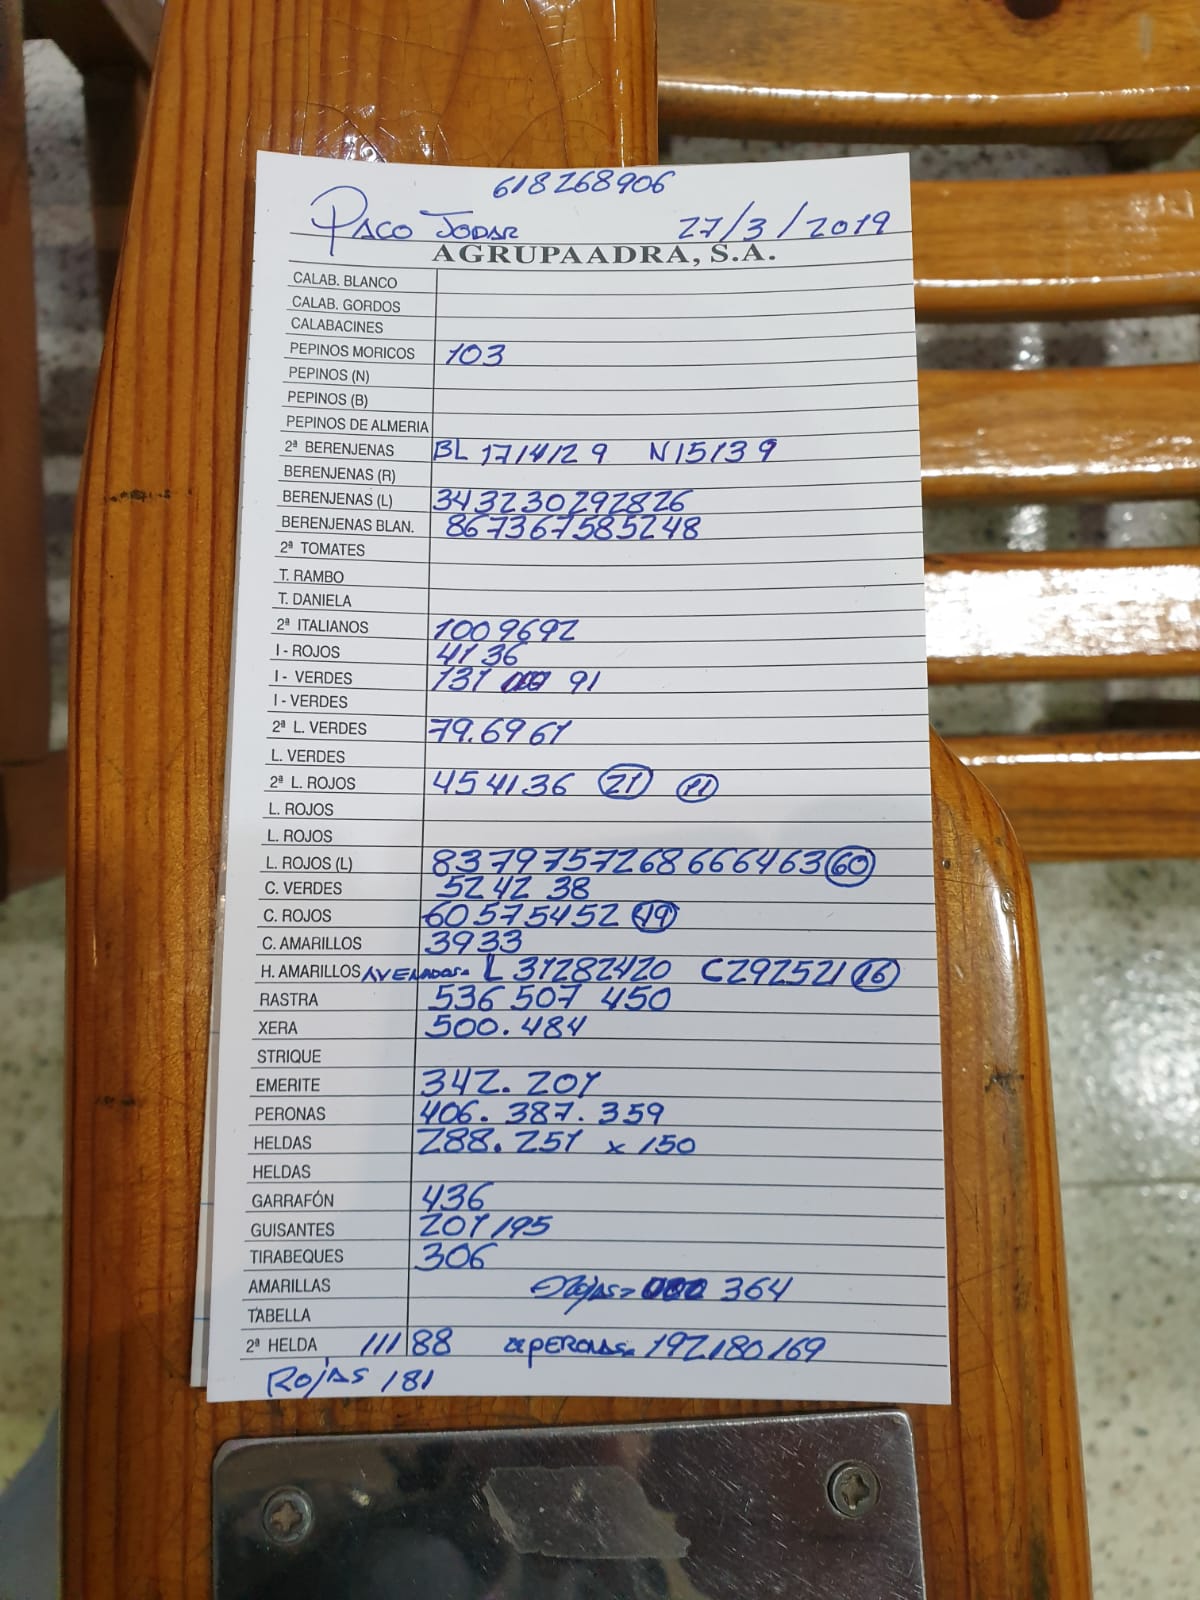 618268906
PACO JODAR 27/3/2019
AGRUPAADRA, S.A.
CALAB. BLANCO
CALAB. GORDOS
CALABACINES
PEPINOS MORICOS 103
PEPINOS (N)
PEPINOS (B)
PEPINOS DE ALMERIA
2ª BERENJENAS BL 1714129 N15139
BERENJENAS (R)
BERENJENAS (L) 343230292826
BERENJENAS BLAN. 867367585248
2ª TOMATES
T. RAMBO
T. DANIELA
2ª ITALIANOS 1009692
I - ROJOS 4136
I - VERDES 131 91
I - VERDES
2ª L. VERDES 79.6961
L. VERDES
2ª L. ROJOS 454136 21 11
L. ROJOS
L. ROJOS
L. ROJOS (L) 8379757268666463 60
C. VERDES 5242 38
C. ROJOS 60575452 49
C. AMARILLOS 3933
H. AMARILLOS L 31282420 C292521 16
RASTRA 536 507 450
XERA 500.484
STRIQUE
EMERITE 342.201
PERONAS 406.387.359
HELDAS 288.251 x 150
HELDAS
GARRAFÓN 436
GUISANTES 201195
TIRABEQUES 306
AMARILLAS 364
TABELLA
2ª HELDA 111 88 PERONAS= 192180169
ROJAS 181